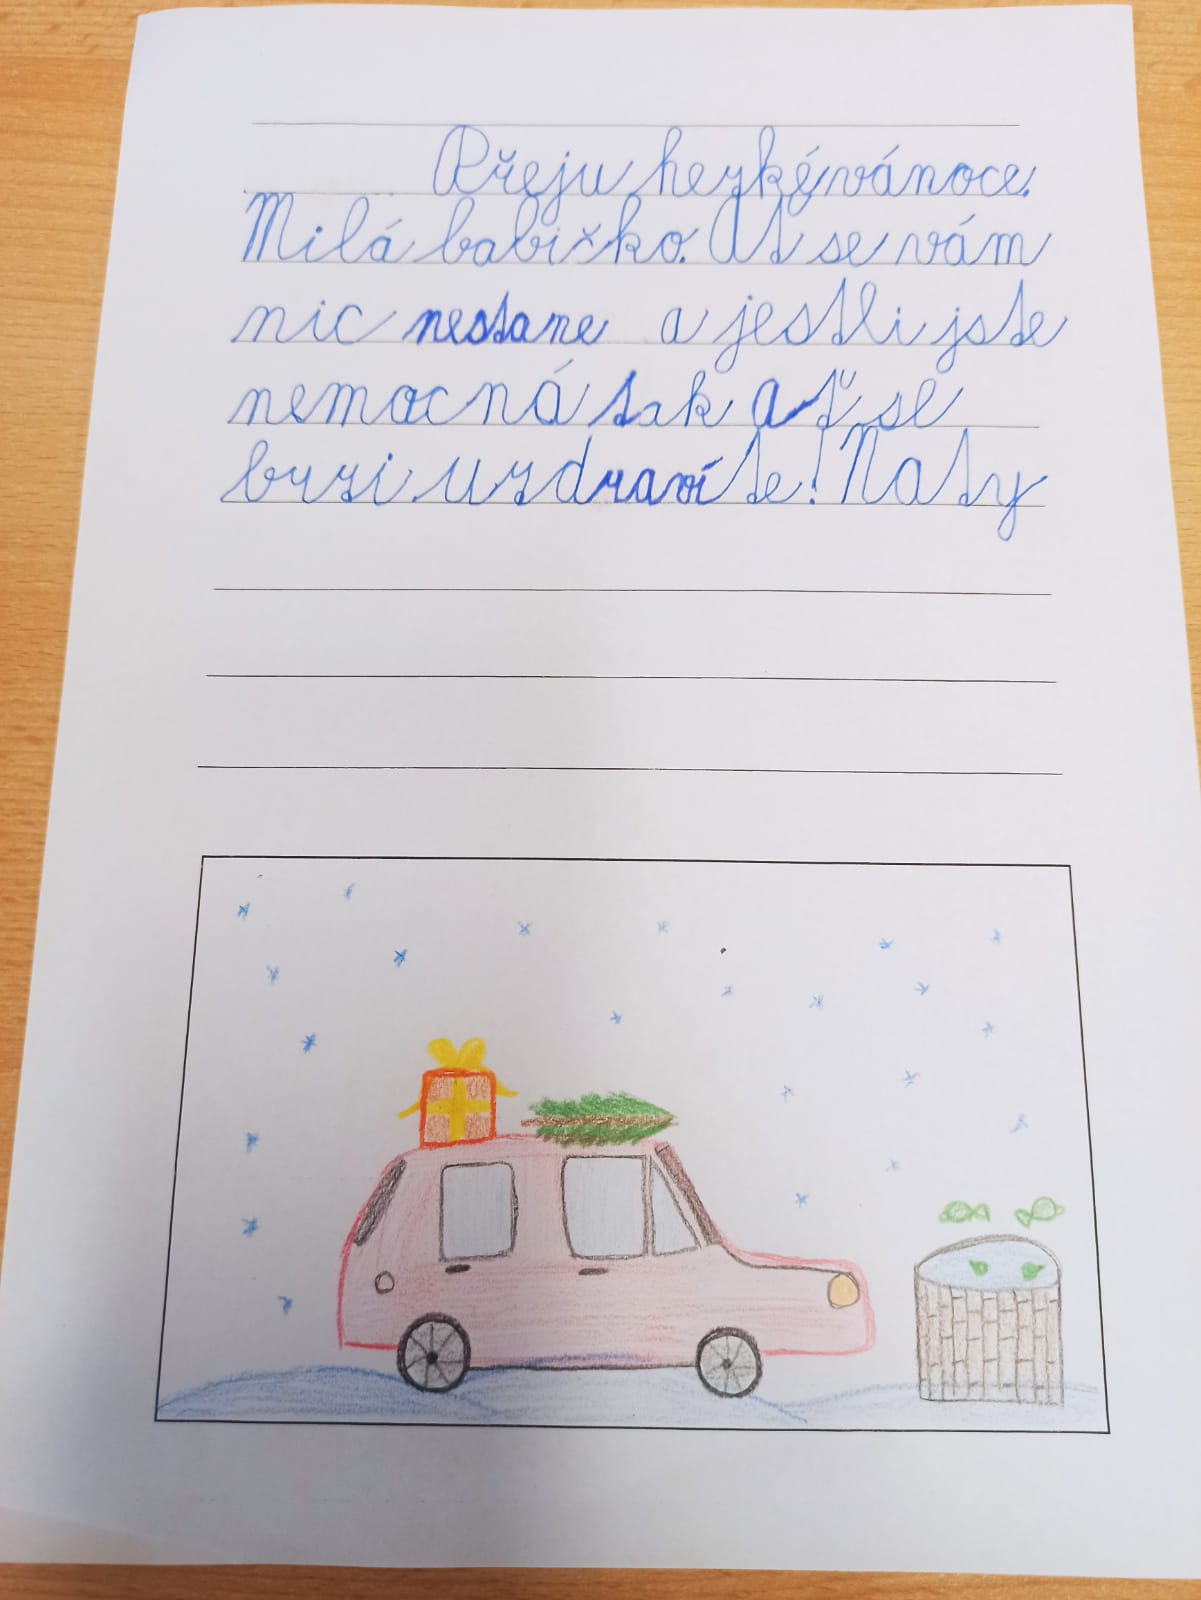 Přeju hezké vánoce.
Milá babičko. At se vám
nic nestane a jestli jste
nemocná tak ať se
brzi uzdravíte! Naty